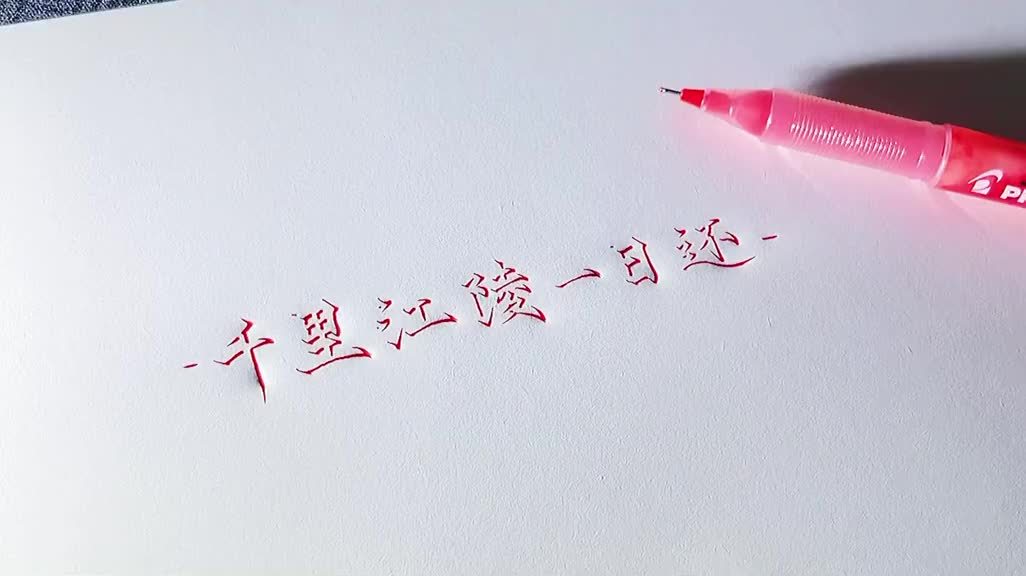 -千里江陵一日还-